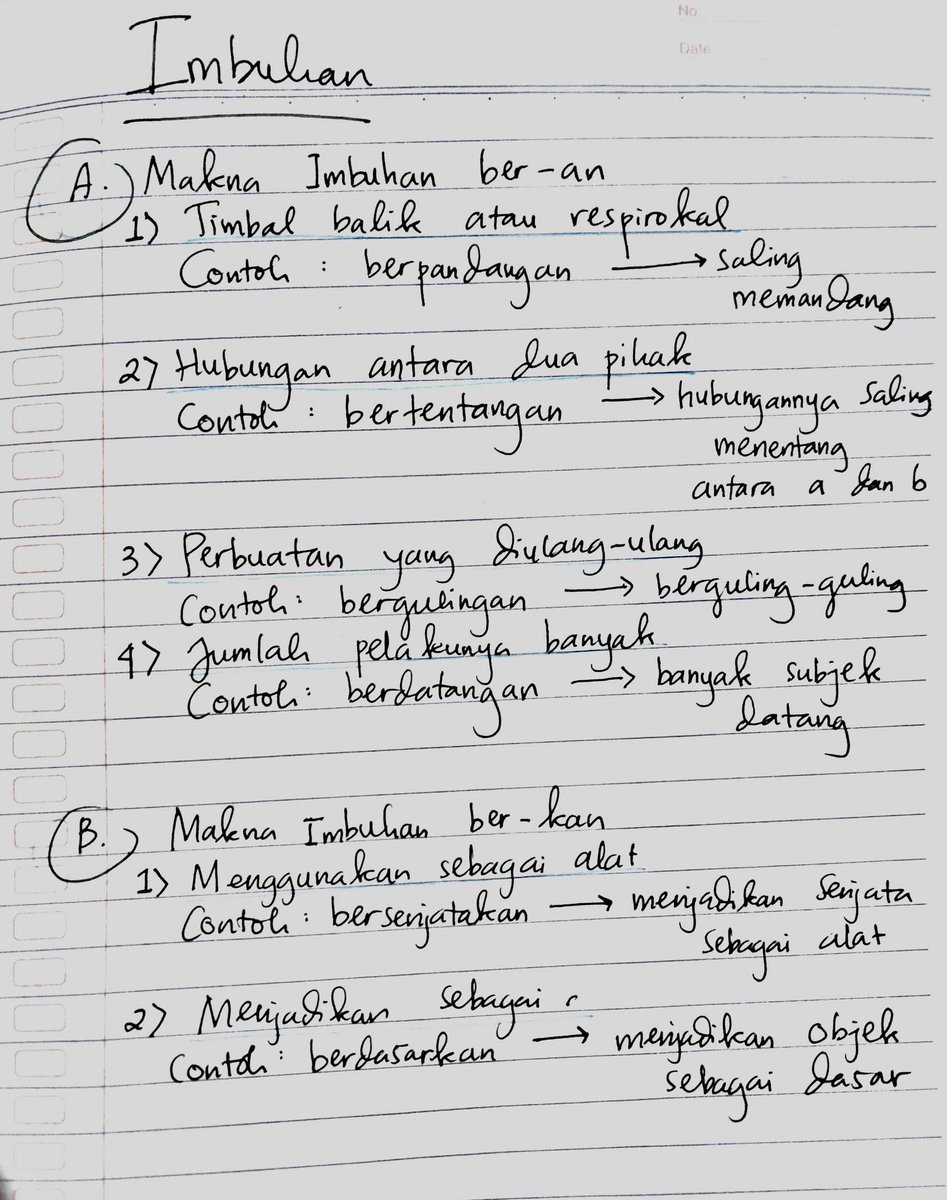 No.
Date :
Imbuhan
A. Makna Imbuhan ber-an
1) Timbal balik atau respirokal
Contoh : berpandangan → saling
memandang
2) Hubungan antara dua pihak
Contoh : bertentangan → hubungannya saling
menentang
antara a dan b
3) Perbuatan yang diulang-ulang
Contoh : bergulingan → berguling-guling
4) Jumlah pelakunya banyak
Contoh : berdatangan → banyak subjek
datang
B. Makna Imbuhan ber-kan
1) Menggunakan sebagai alat
Contoh : bersenjatakan → menjadikan senjata
sebagai alat
2) Menjadikan sebagai
Contoh : berdasarkan → menjadikan objek
sebagai dasar